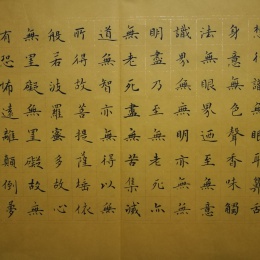 身意無色聲香味觸
法無眼界迺至無意
識界無無明亦無無
明盡乃至無老死亦
無老死盡無苦集滅
道無智亦無得以無
所得故菩提薩埵依
般若波羅蜜多故心
無罣礙無罣礙故無
有恐怖遠離顛倒夢